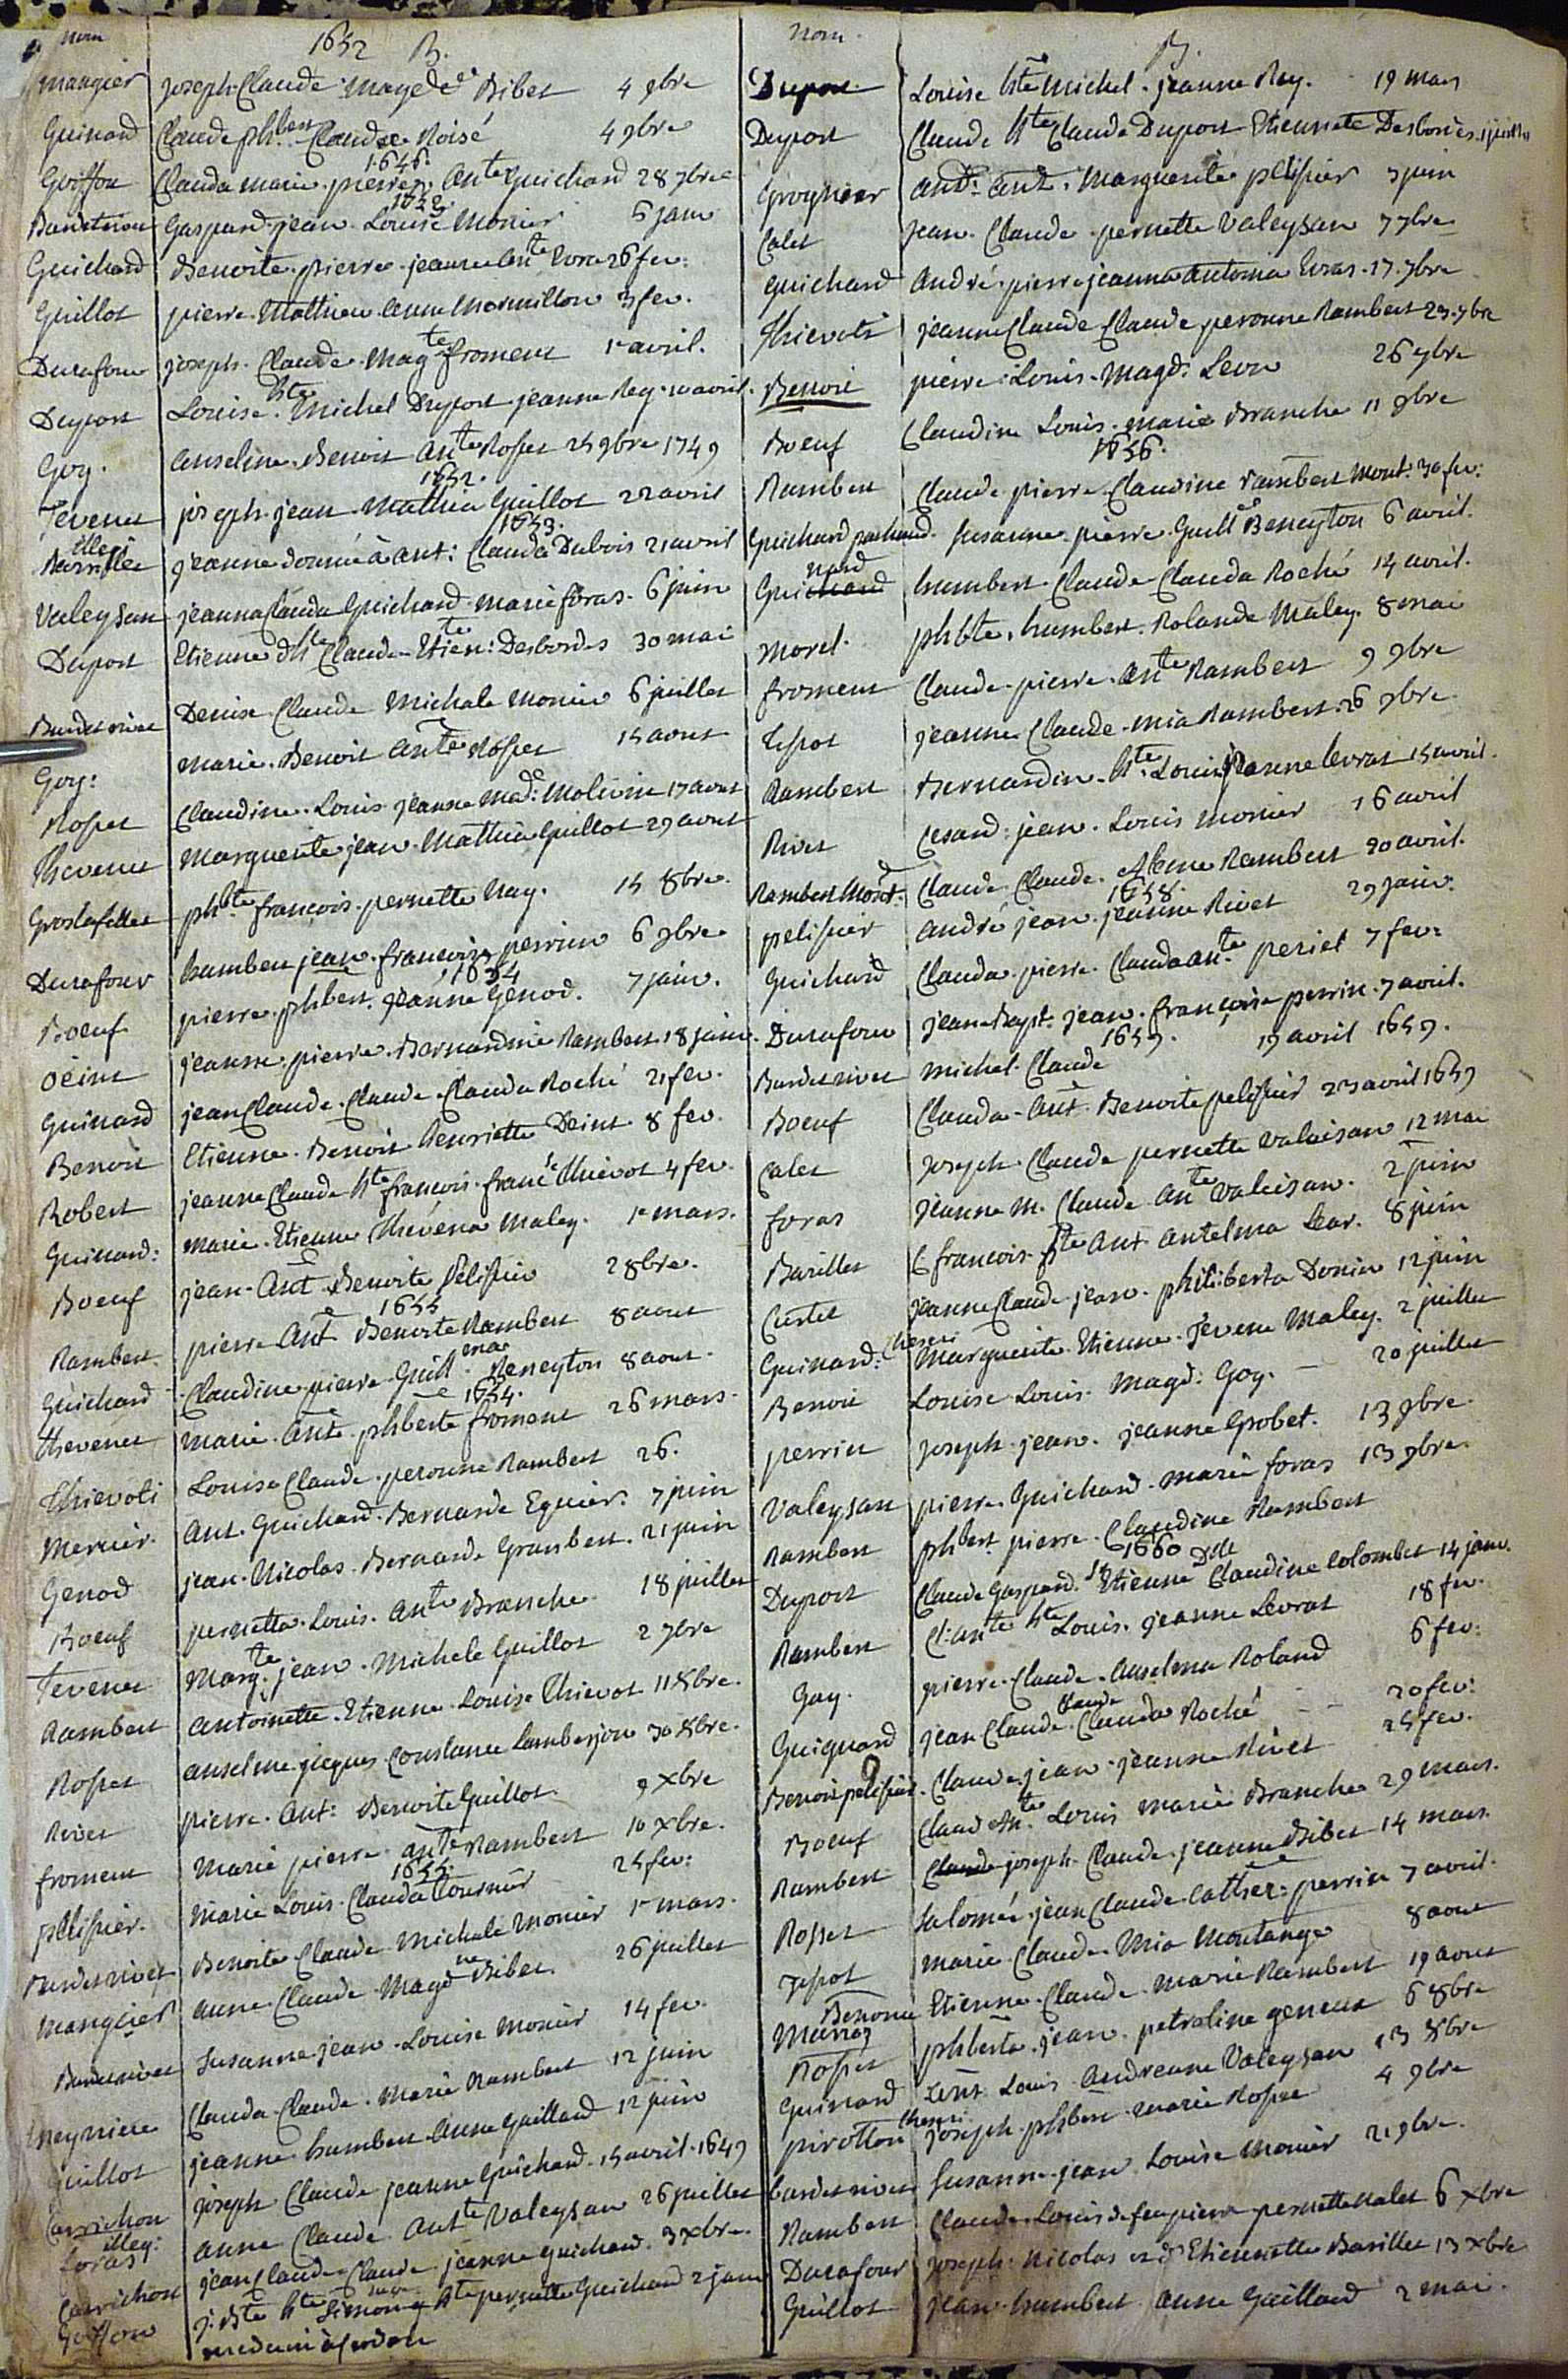 nom
1652 B.
mangier Joseph Claude Magd.e Bibet 4 9bre
Guinard Claude phbert Claudae Roisé 4 9bre
1646.
Goiffon Clauda marie pierre Ante Guichard 28 7bre
1652
Burdetrivet Gaspard jean Louise Monier 5 janv
Guichard Benoite pierre jeanne Ante Evra 26 fev:
Guillot pierre Mathieu Anne Mermillon 3 fev.
Durafour joseph. Claude. Magte froment 1r avril.
Dupont Louise hte Michel Dupont jeanne Rey 10 avril.
Goy. Anseline. Benoit Ante Rosset 25 9bre 1749
1652.
Tevenet joseph. jean. Mathia Guillot 22 avril
1653.
illegi Barillet jeanne donnée à ant: Clauda Dubois 21 avril
Valeysan jeanna Clauda Guichard marie foras 6 juin
Dupont Etienne d hte Claude Etien:te Desbordes 30 mai
Burdet rivet Denise Claude Michale Monier 6 juillet
Goy: marie. Benoit Ante Rosset 15 aout
Rosset Claudine. Louis jeanne Mad: Moliorin 17 aout
Thevenet Marguerite jean. Mathia Guillot 29 aout
Groslafilley phte francois. pernette Nay. 15 8bre.
Durafour humbert jean. francoise perrin 6 9bre
1654
Boeuf pierre. phbert. jeanne Genod. 7 janv.
Deint jeanne. pierre. Bernardine Rambert 18 janv.
Guinard jean Claude. Claude. Clauda Roché 21 fev.
Benoit Etienne. Benoit henriette Deint 8 fev.
Robert jeanne Claude hte francois. frane Thievot 4 fev.
Guinard: marie. Etienne Thévena Maley. 1r mars.
Boeuf jean. Ant Benoite Pelissier 2 8bre.
1655
Rambert. pierre Ant Benoite Rambert 8 aout
Guichard Claudine pierre Guill.ma Beneyton 8 aout.
1654.
Thevenet marie. Ante phberte froment 26 mars.
Thievoti Louise Claude. peronne Rambert 26.
Mercier. Ant. Guichard. Bernarde Equier: 7 juin
Genod jean. Nicolas. Bernarde Grambert. 21 juin
Boeuf pernette. Louis. Ante Branche 18 juillet
Tevenet Margte jean. Michele Guillot 2 7bre
Rambert Antoinette. Etienne. Louise Thievot 11 8bre.
Rosset Anselme jacques Constance Lamberjon 30 8bre.
Rivet pierre. Ant: Benoite Guillot. 9 Xbre
froment Marie pierre. ante Rambert 10 Xbre.
1655.
pelissier. Marie Louis. Clauda Tournier 25 fev:
Burdet rivet Benoite Claude Michale Monier 1r mars.
Mangier Anne Claude Magdne Bibet. 26 juillet
Burdet rivet Susanne jean. Louise Monier 14 fev.
Meyniere Clauda. Claude. Marie Rambert 12 juin
Guillot jeanne humbert Anne Gaillard 12 juin
Carrichon joseph Claude jeanne Guichard 15 avril 1649
illeg: foras Anne Claude Ante Valeysan 26 juillet
Carrichon jean Claude Claude jeanne guichard. 3 Xbre.
Goiffon j. Bte hte Simon hte pernette Guichard 2 janv
medecin à cerdon
nom.
B.
Dupont. Louise hte Michel. jeanne Rey. 19 mars
Dupont Claude hte Claude Dupont Etiennete Desbordes. 1 juillet
Grognier Antd. And. Marguerite pelissier 3 juin
Calet Jean. Claude. pernette Valeysan 7 7bre
Guichard André. pierre jeanna antonia Evras. 17. 7bre
Thievoti jeanne Claude Claude peronne Rambert 23. 7bre
Benoit pierre. Louis. Magd: Levra 26 7bre
Boeuf Claudine Louis. marie Branche 11 9bre
1656.
Rambert Claude. pierre Claudine rambert Mont. 30 fev:
Guichard pachoud. Susanne. pierre Guille Beneyton 6 avril.
Guinard humbert. Claude Clauda Roché 14 avril.
Morel. phbte. humbert. Rolande Maley. 8 mai
froment Claude. pierre. Ante Rambert 9 9bre
Tepot jeanne Claude. mia Rambert. 26 9bre
Rambert Bernardin. hte. Louis jeanne levrat 15 avril.
Rivet Cesard: jean. Louis monier 16 avril
Rambert Mont. Claude Claude. Etiene Rambert 20 avril.
1658.
pelissier André jean. jeanne Rivet 29 janv.
Guichard Clauda. pierre. Clauda ante. periet 7 fev:
Durafour jean Bapt: jean. françoise perrin. 7 avril.
1659.
Burdet rivet Michel. Claude 19 avril 1659.
Boeuf Clauda. Ant. Benoite pelissier 23 avril 1659
Calet joseph. Claude pernette Valeisan 12 mai
foras jeanne M. Claude Ante Valeisan. 2 juin
Barillet francois hte Ant. Antelma Lear. 8 juin
Curtet jeanne Claude. jean. philiberta Donin 12 juin
Guinard: Marguerite. Etienne. Tevene Maley. 2 juillet
Benoit Louise Louis. Magd. Goy. 20 juillet
perrin joseph. jean. jeanne Gobet. 13 9bre
Valeysan pierre. Guichard. marie foras 13 9bre.
Rambert phbert pierre. Claudine Rambert
1660
Dupont Claude Gaspard. Sr Etienne Ddlle Claudine Colombet 14 janv.
Rambert Cl: ante hte Louis. jeanne Levrat 18 fev.
Goy. pierre. Claude. Anselma Roland 6 fev:
Guiguard jean Claude. Claude Clauda Roché 20 fev:
Benoit pelissier. Claude. jean. jeanne Rivet 25 fev.
Boeuf Claud ante. Louis marie Branche 29 mars.
Rambert Claude joseph. Claude. jeanne Bibet 14 mars.
Rosset Salomée. jean Claude. Cather: perrin 7 avril.
Tepot marie. Claude. Mia Montange 8 aout
Etienne. Claude. marie Rambert 19 aout
Rosset phberta. jean. petroline geneux 6 8bre
Guinard Louis Andreane Valeysan 13 8bre
pirotton Joseph phbert marie Rosset 4 9bre
burdet rivet Susanne. jean Louise Monier 21 9bre.
Rambert Claude. Louis de feu pierre pernette Nalet 6 Xbre
Durafour Joseph. Nicolas et de Etiennette Barillet 13 Xbre
Guillot jean. humbert anne Gaillard 2 mai.